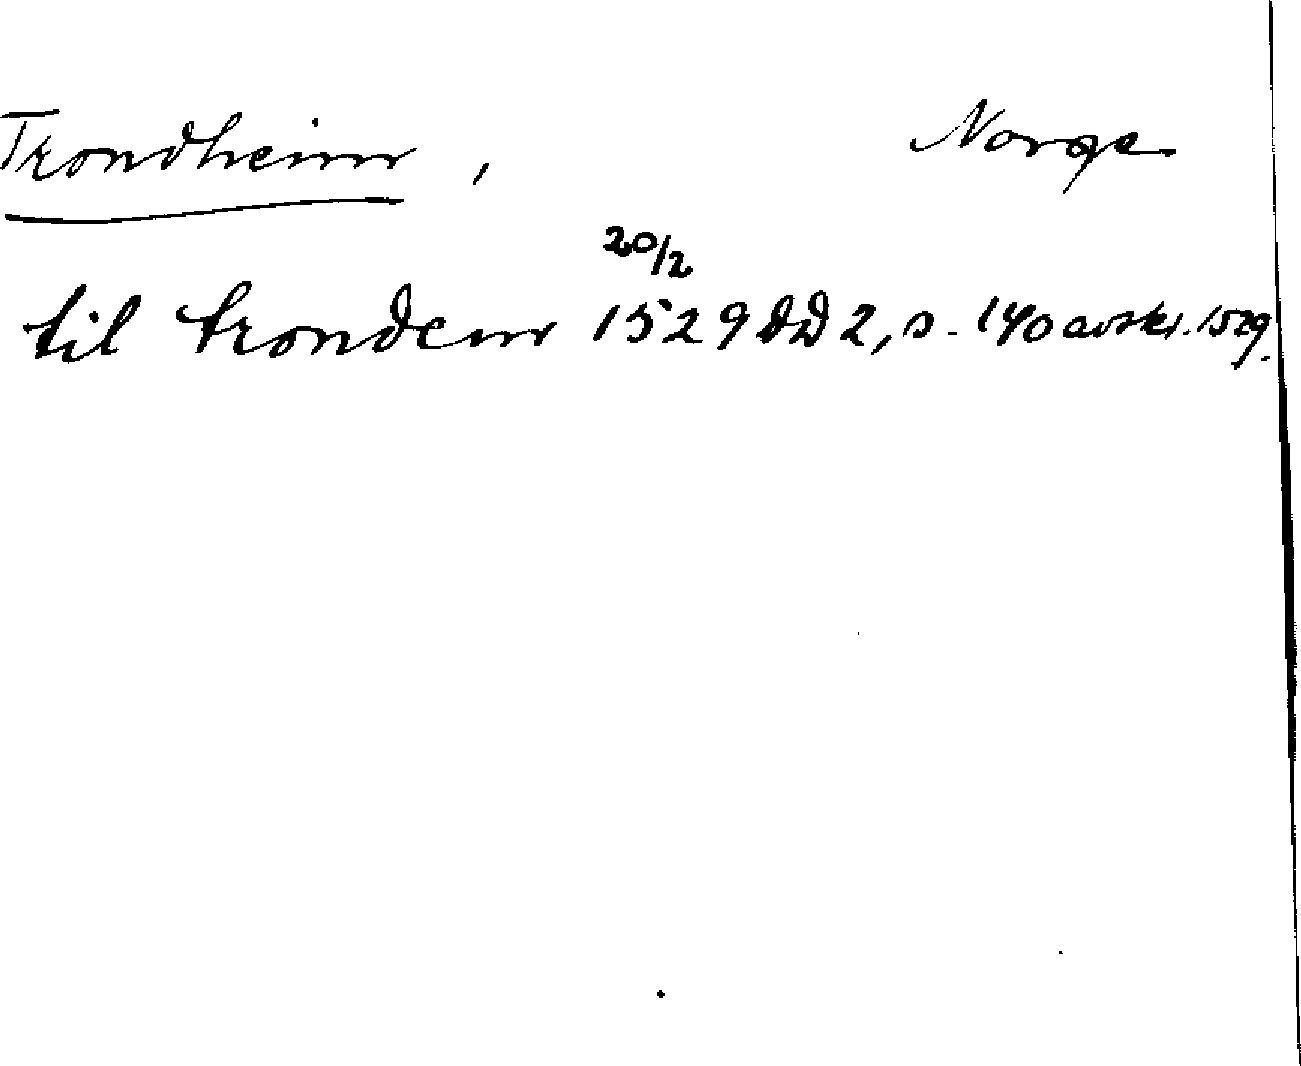 Trondheim, Norge
20/2
til trondem 1529 DD 2, s. 140 avskr. 1529.